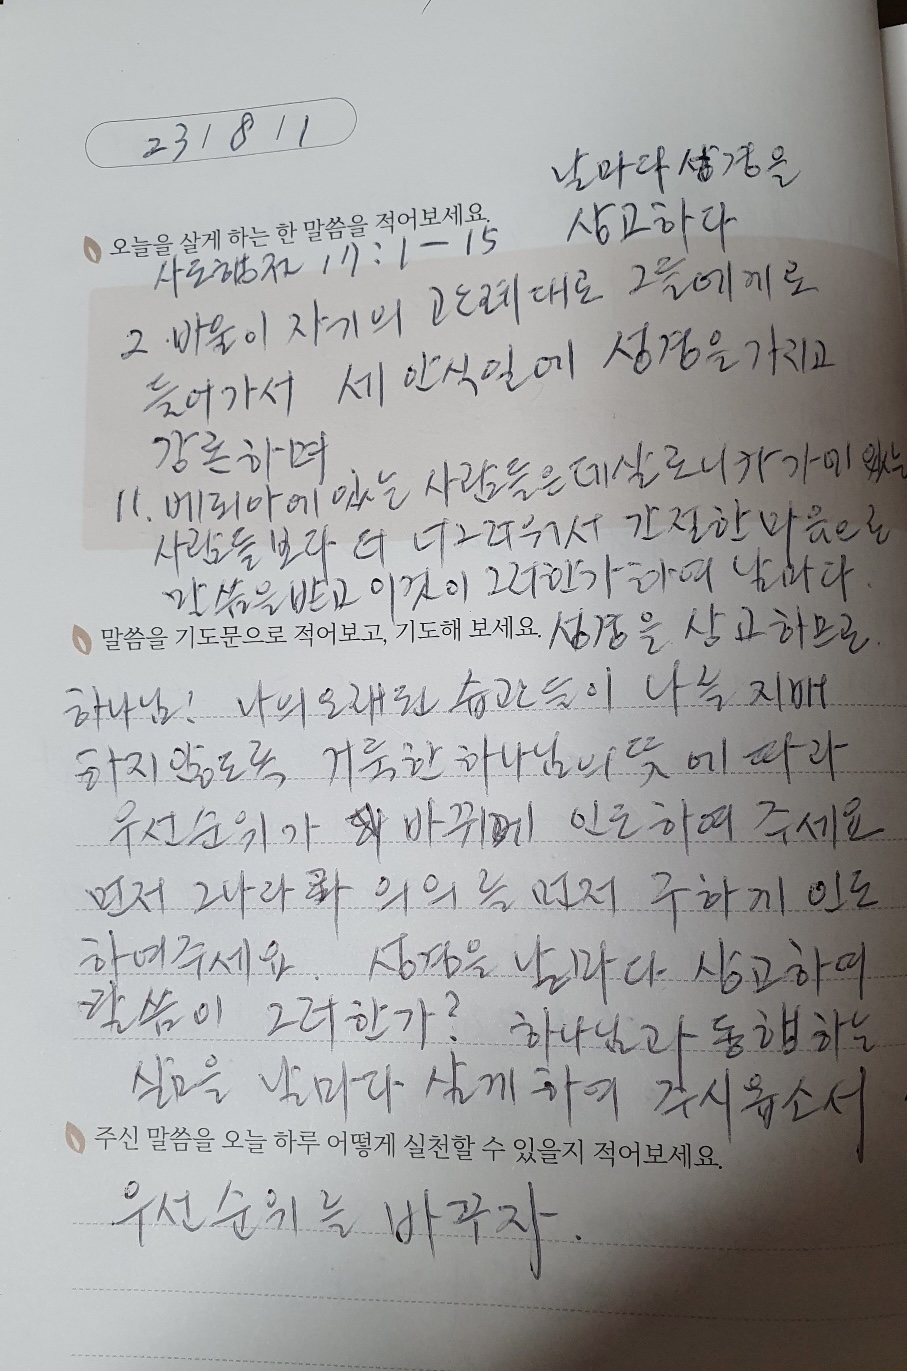 23/8/1
날마다 성경을
상고하다
오늘을 살게 하는 한 말씀을 적어보세요.
사도행전 17:1-15
2. 바울이 자기의 관례대로 그들에게로
들어가서 세 안식일에 성경을 가지고
강론하며
11. 베뢰아에 있는 사람들은 데살로니가가에 있는
사람들보다 더 너그러워서 간절한 마음으로
말씀을 받고 이것이 그러한가 하여 날마다.
성경을 상고하므로.
말씀을 기도문으로 적어보고, 기도해 보세요.
하나님! 나의 오래된 습관들이 나를 지배
하지 않도록 거룩한 하나님의 뜻에 따라
우선순위가 바뀌게 인도하여 주세요
먼저 그나라와 의의를 먼저 구하게 인도
하여주세요. 성경을 날마다 상고하여
말씀이 그러한가? 하나님과 동행하는
삶을 날마다 살게 하여 주시옵소서.
주신 말씀을 오늘 하루 어떻게 실천할 수 있을지 적어보세요.
우선순위를 바꾸자.